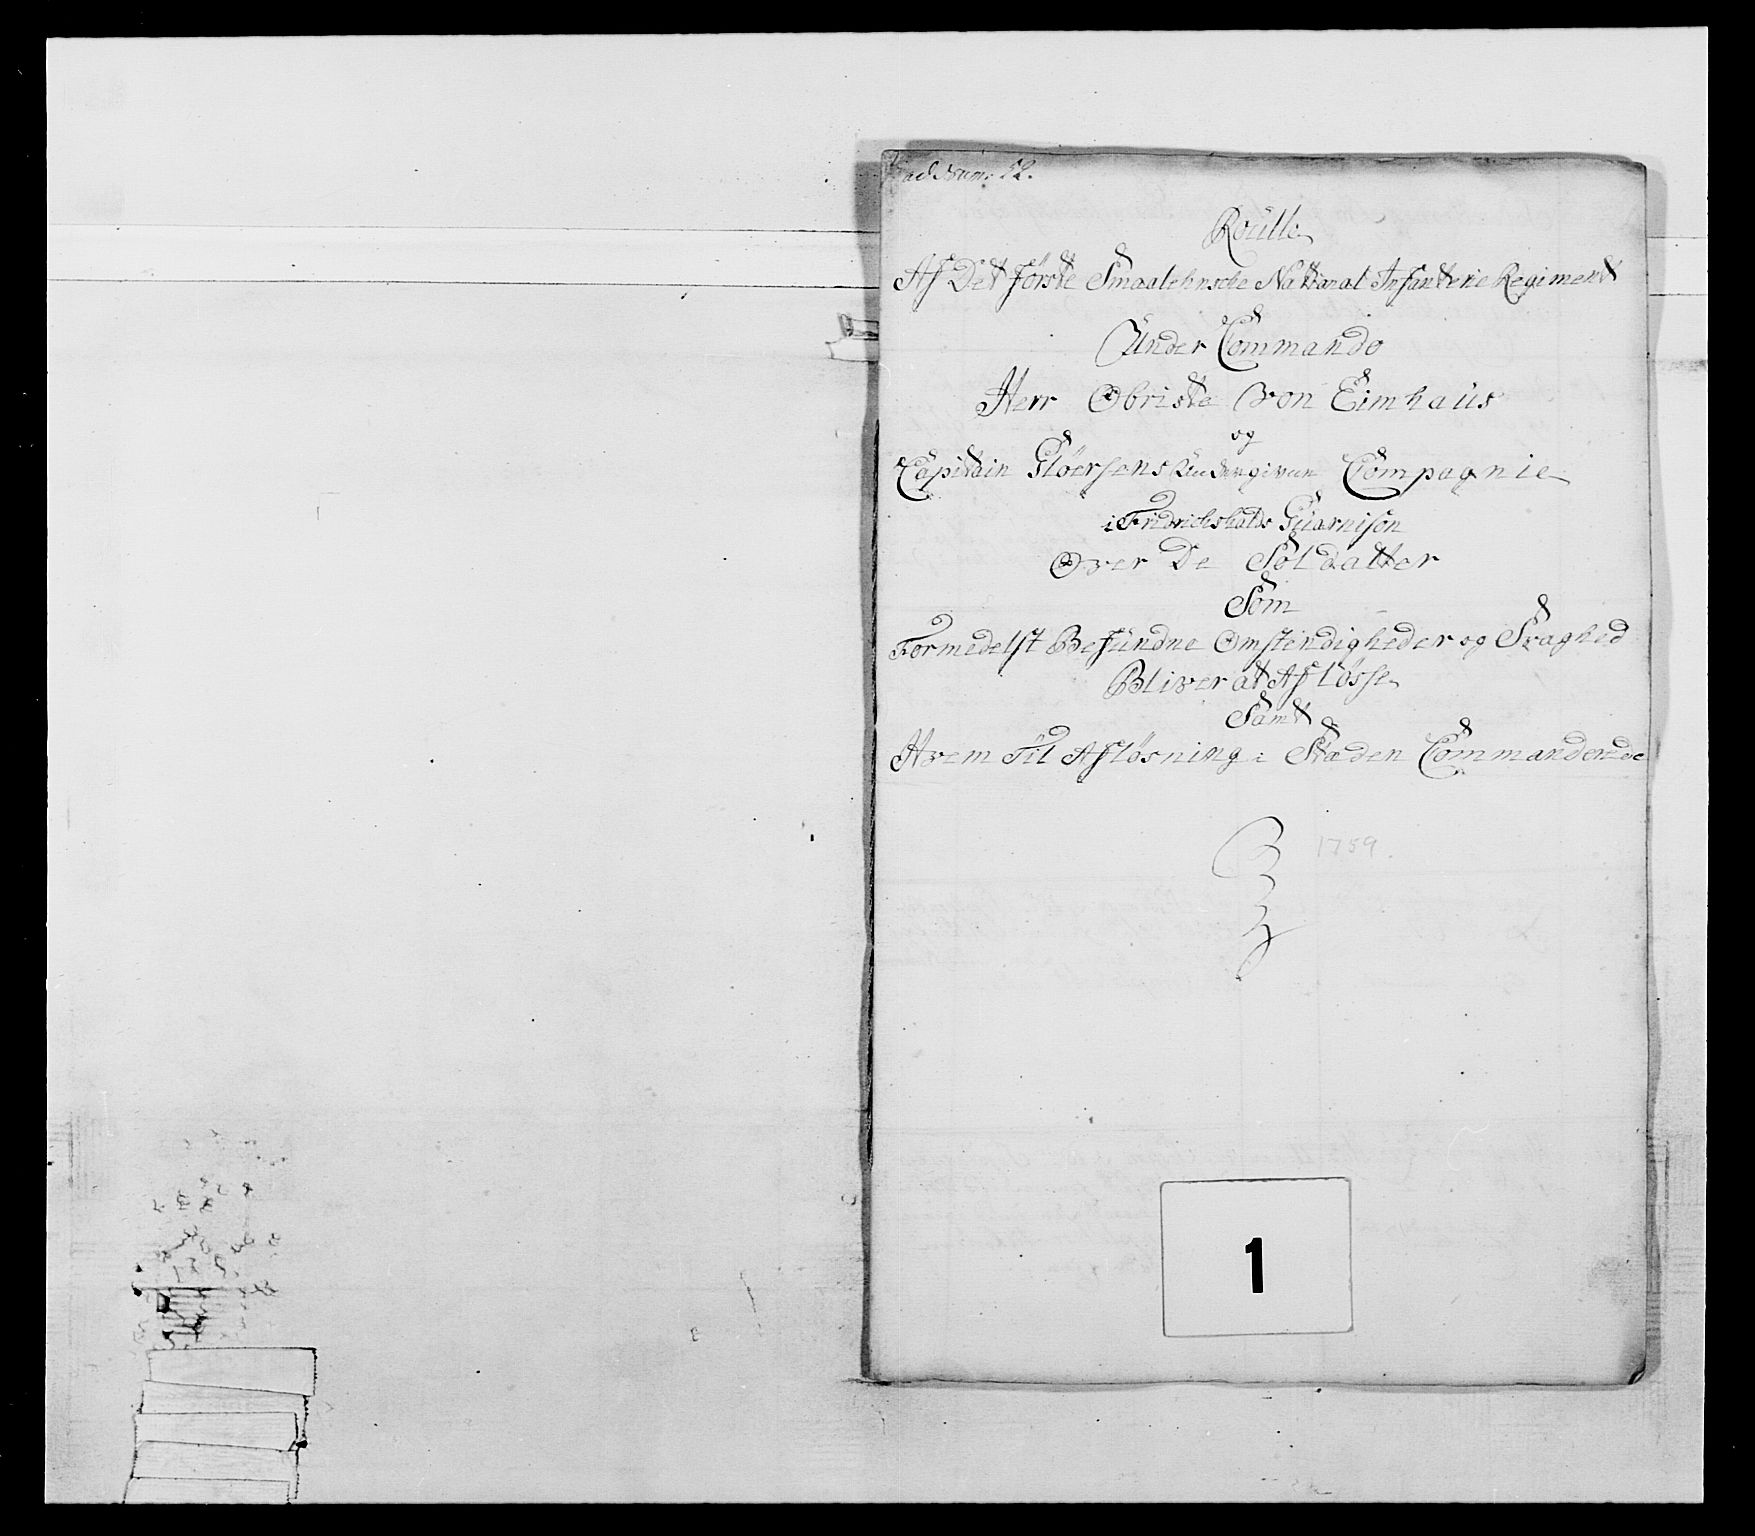 ad Num: 52.
Roülle
Af Det Første Smaalehnsche National Infanterie Regiment
Ünder Commando
Herr Obriste von Eimhaüs
og
Capitain Stöersens Undergivne Compagnie
i Fridrichshalds Güarnison
Over De Soldatter
Som
Formedelst Befündne Omstendigheder og Svaghed
Bliver at Afløsse
Samt
Hvem Til Afløsning i Stæden Commanderede
1759.
1